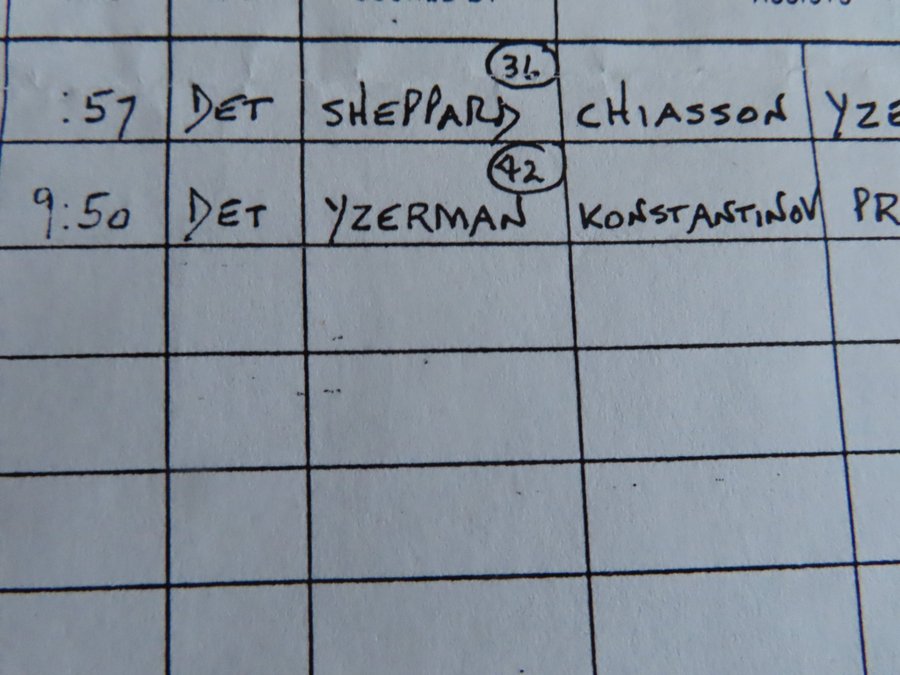 :57 DET SHEPPARD 36 CHIASSON YZE
9:50 DET YZERMAN 42 KONSTANTINOV PR